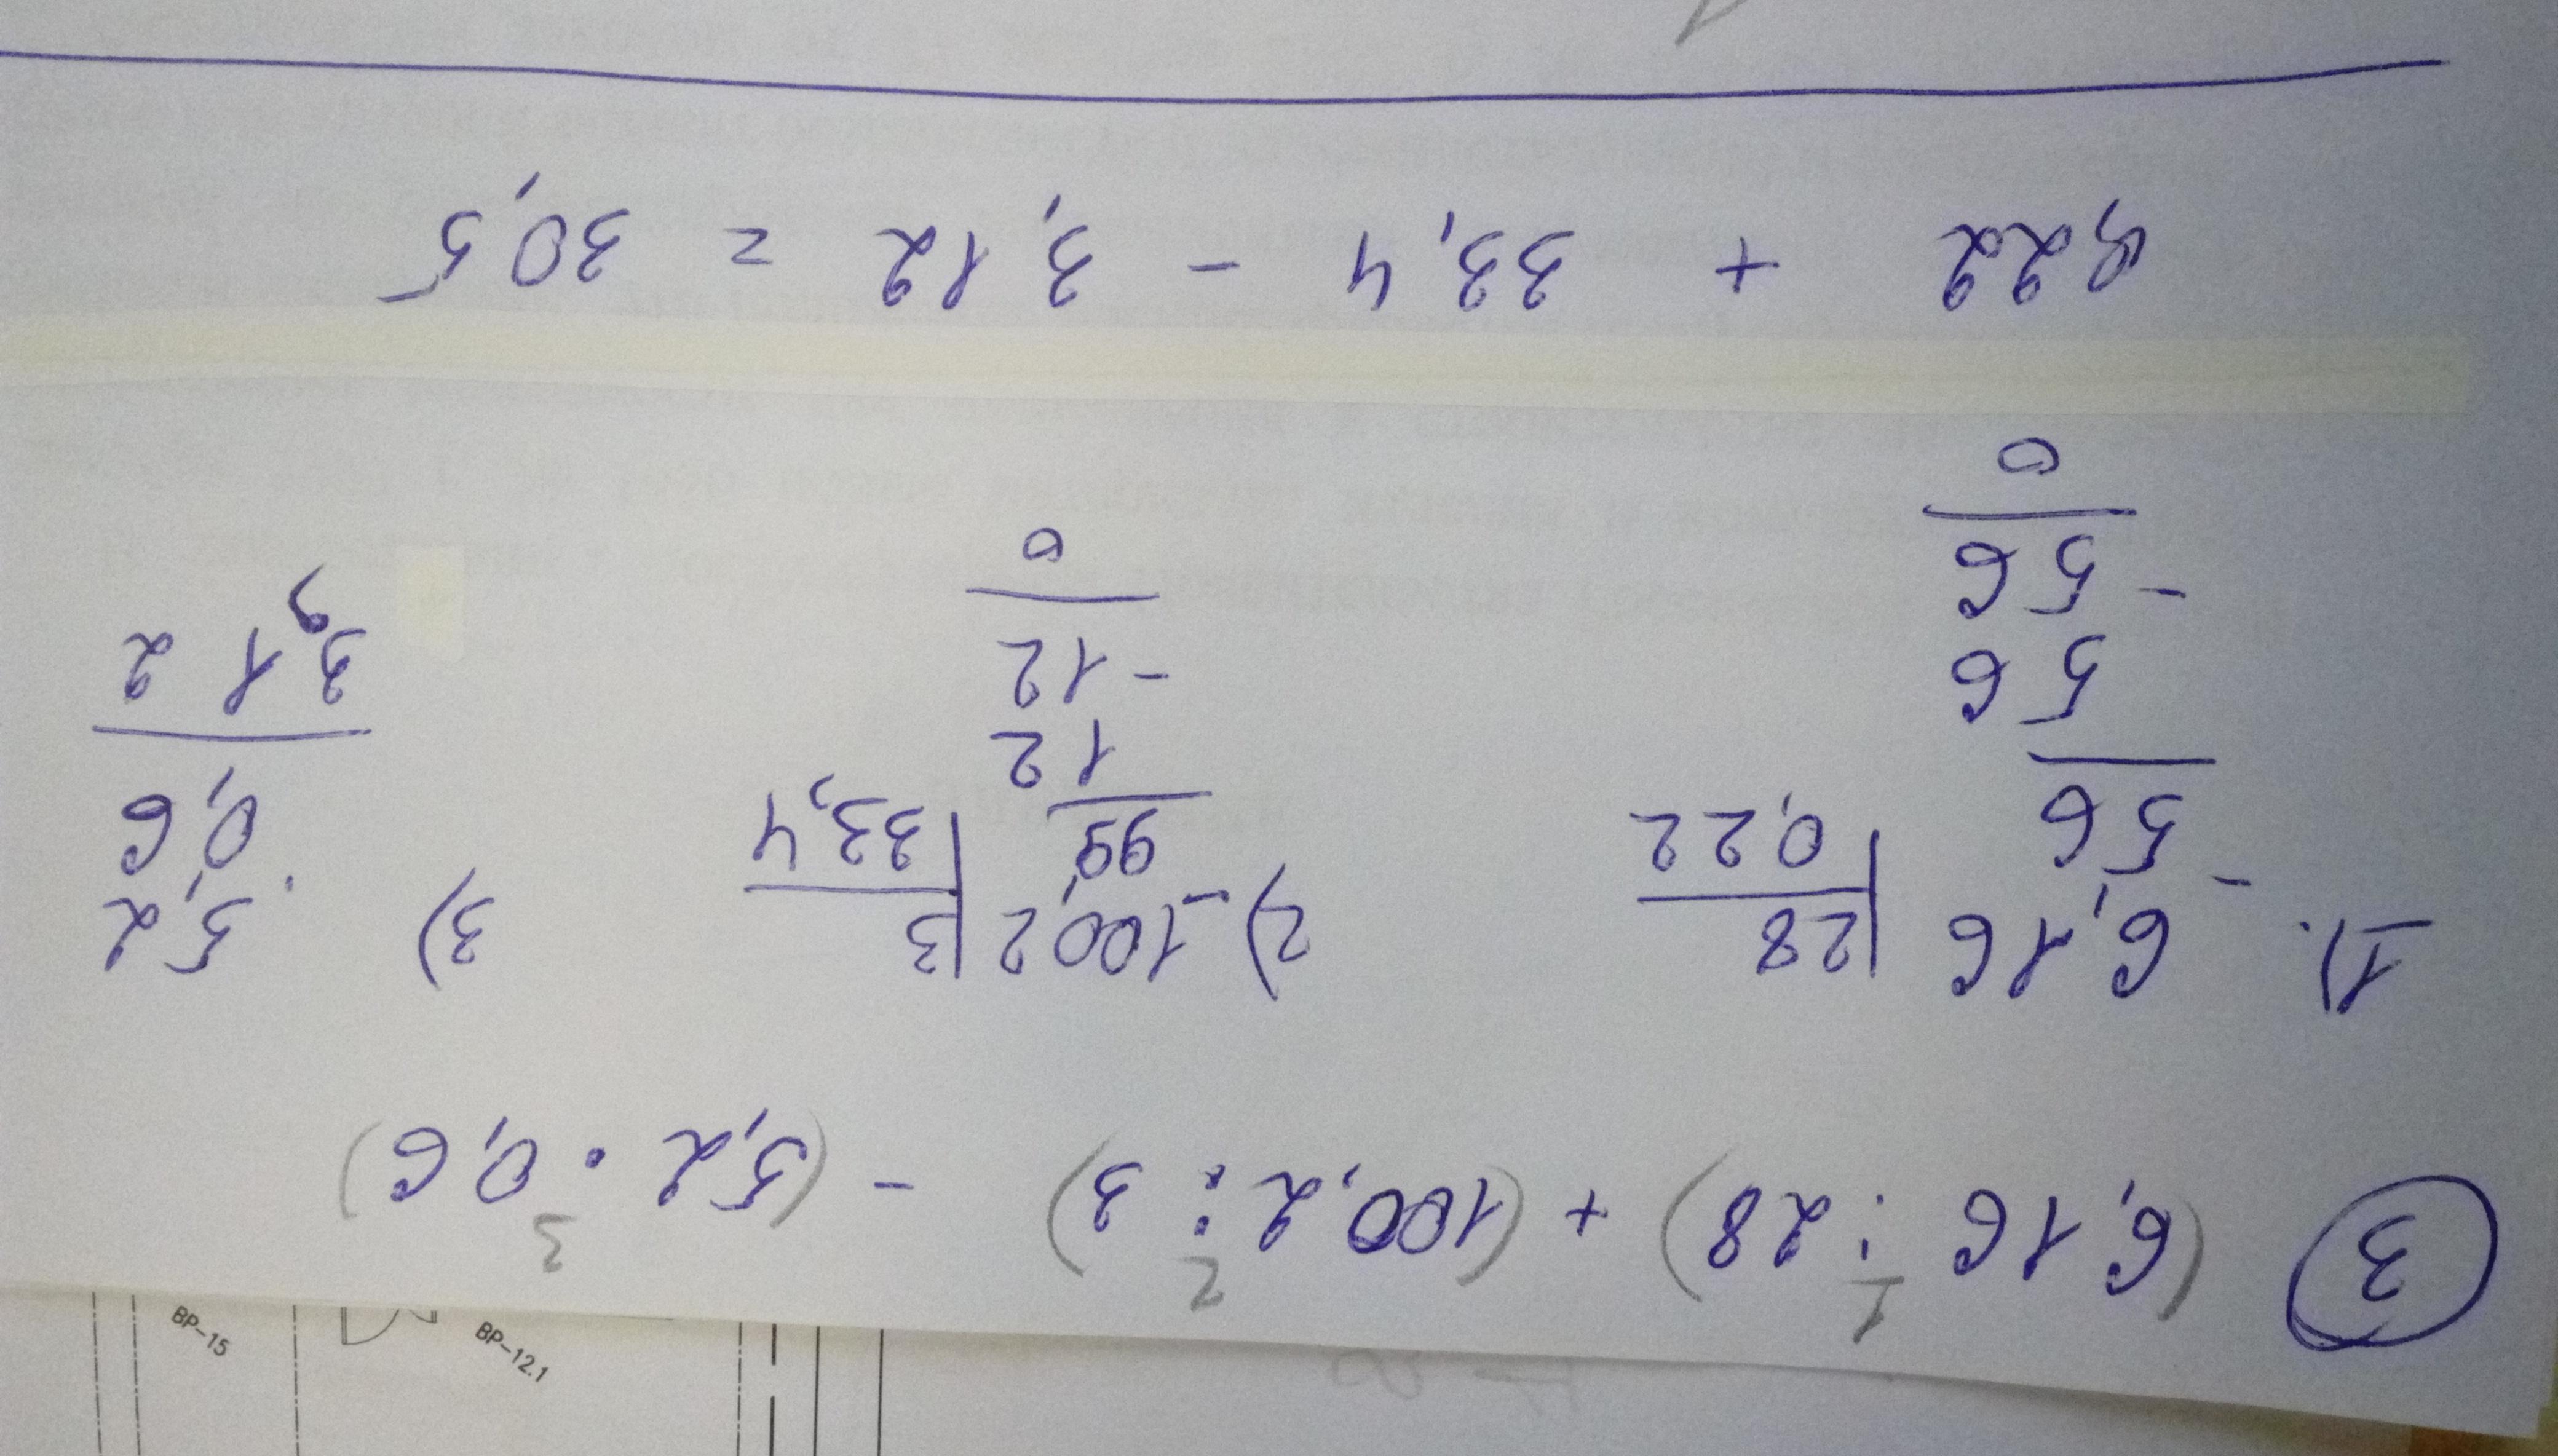 ③ (6,16 : 28) + (100,2 : 3) - (5,2 · 0,6)
1 2 3
1). 6,16 |28 2) 100,2 |3 3) 5,2
- 56 0,22 - 99 33,4 · 0,6
56 12 3,12
- 56 - 12
0 0
0,22 + 33,4 - 3,12 = 30,5
BP-15
BP-12.1